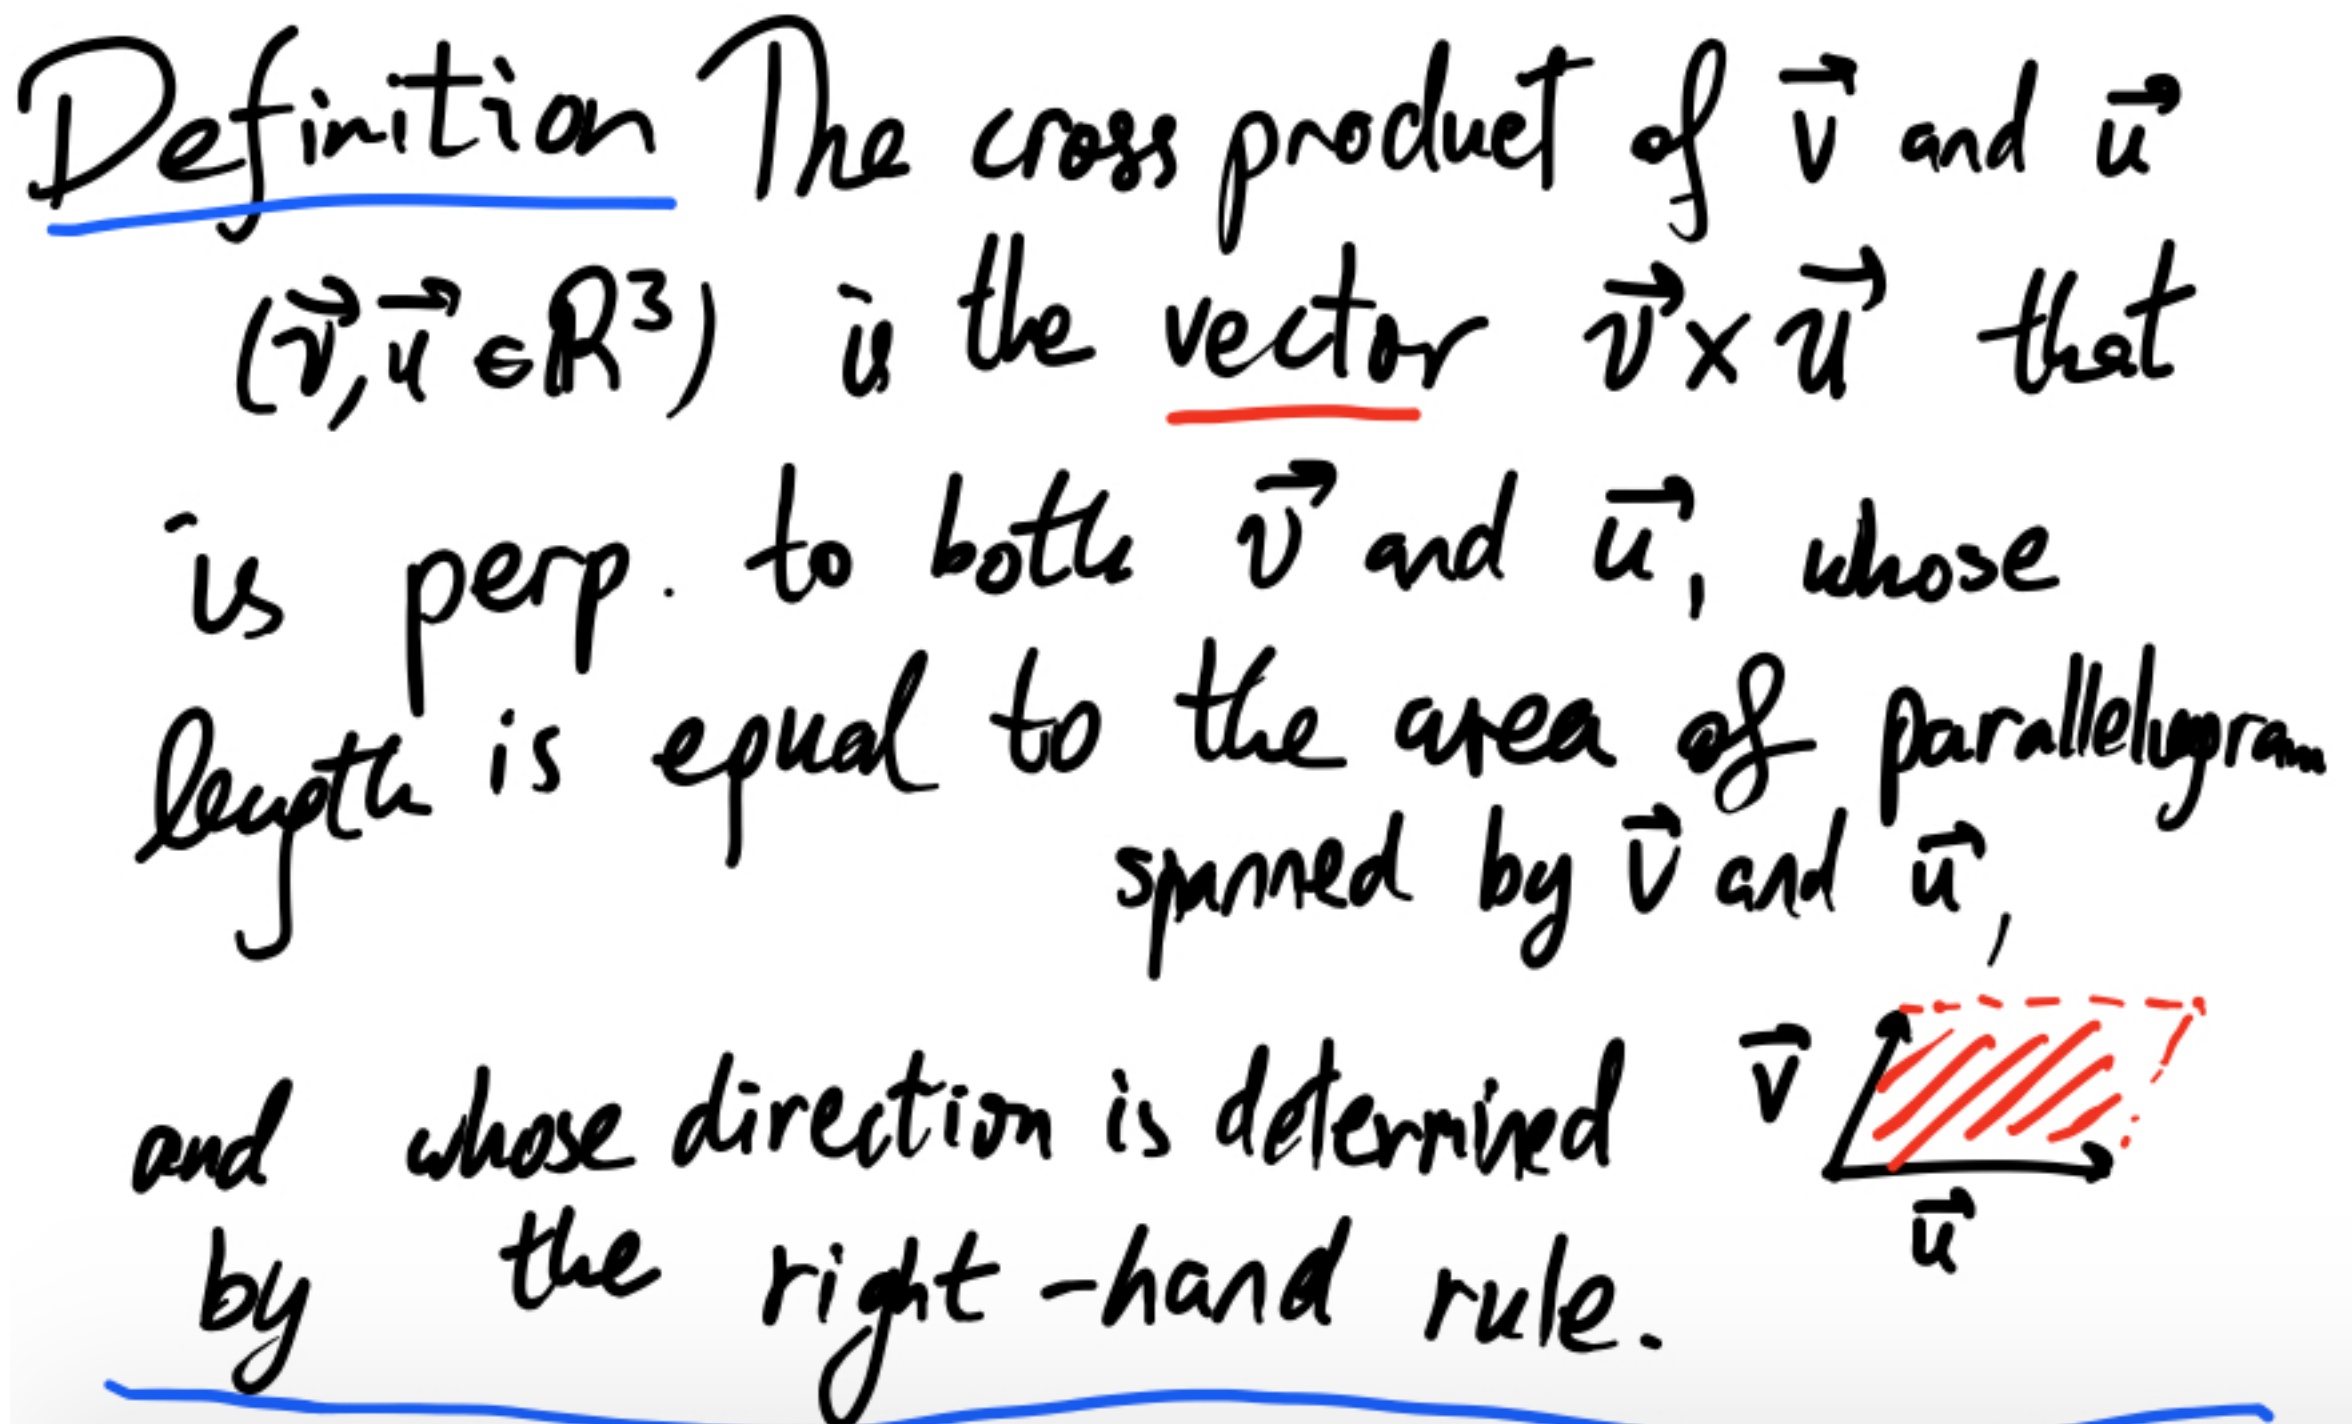 Definition The cross product of v⃗ and u⃗
(v⃗, u⃗ ∈ ℝ³) is the vector v⃗ × u⃗ that
is perp. to both v⃗ and u⃗, whose
length is equal to the area of parallelogram
spanned by v⃗ and u⃗,
and whose direction is determined
by the right-hand rule.
v⃗
u⃗